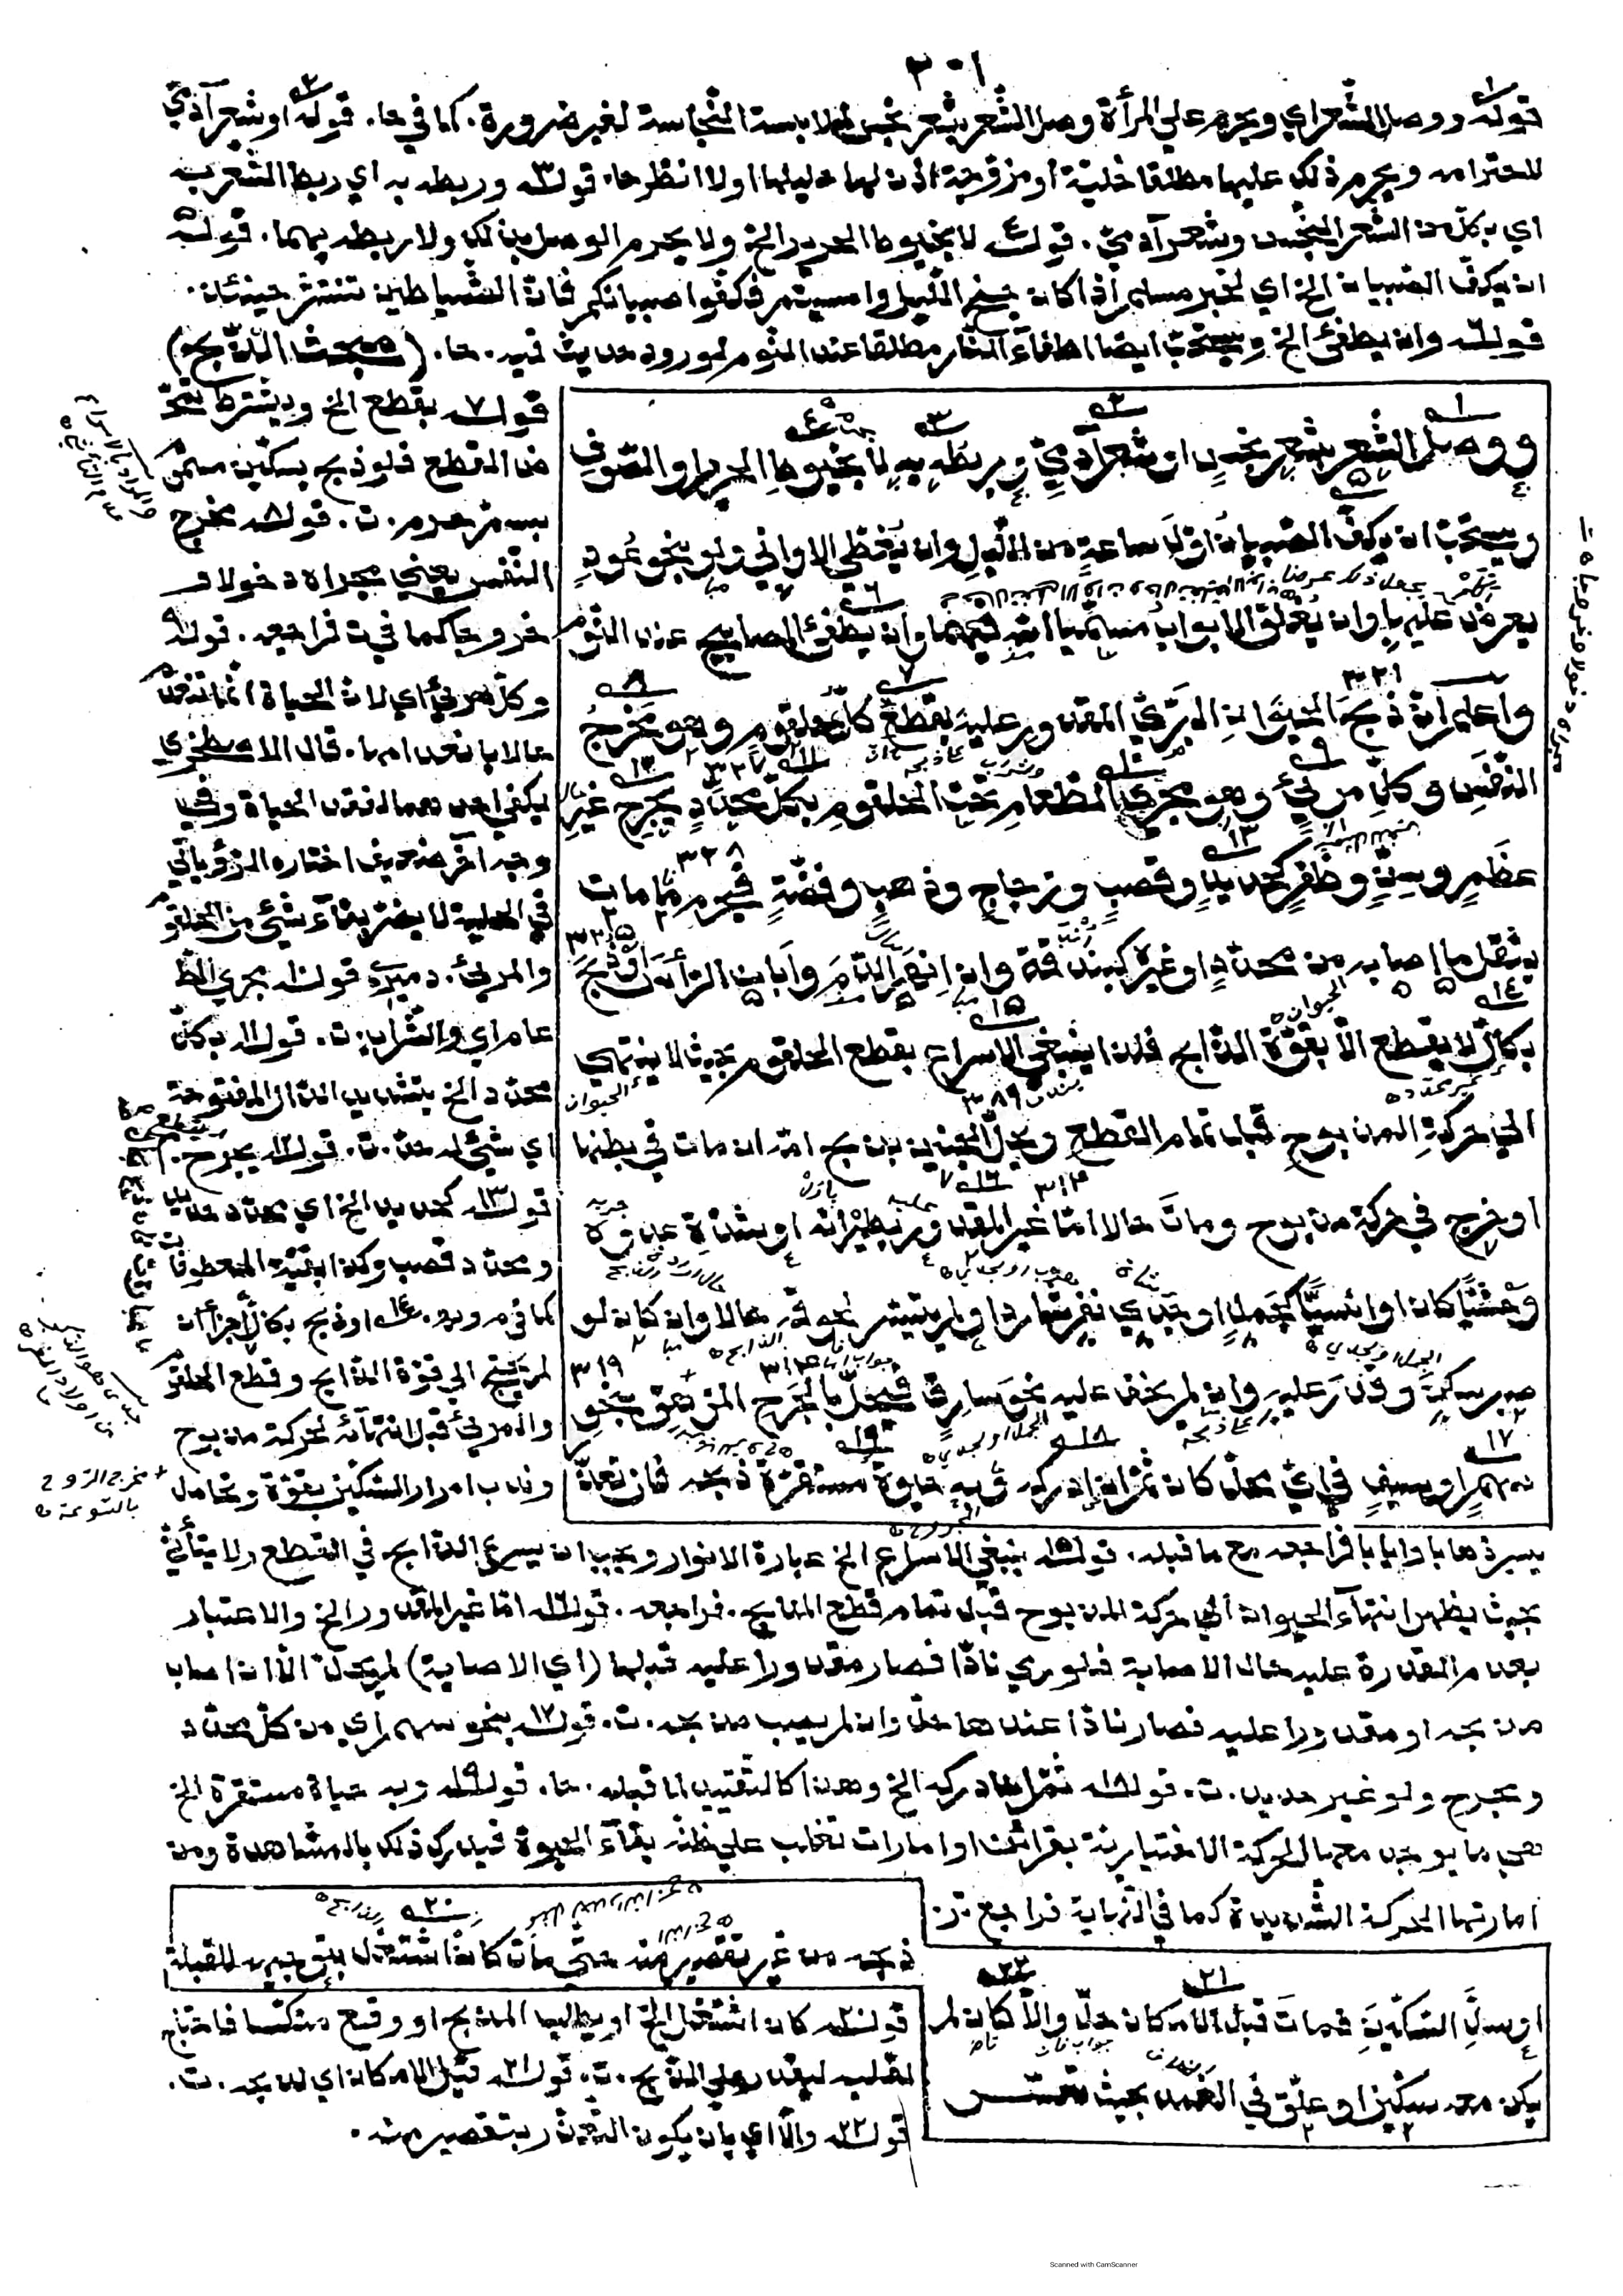 ٣٠١
قوله ووصل الشعر اي ويحرم علي المرأة وصل الشعر بشعر نجس لملابسة النجاسة لغير ضرورة. كما في حا. قوله ٢ او شعر آدمي
للاحترامه ويحرم ذلك عليها مطلقا خلية او مزوجة اذن لها حليلها اولا انظر حا. قوله ٣ وربطه به اي ربط الشعر به
اي بكل من الشعر النجس وشعر آدمي. قوله ٤ لا بخيوط الحرير الخ ولا يحرم الوصل بذلك ولا ربطه بهما. قوله ٥
ان يكف الصبيان الخ اي لخبر مسلم اذا كان جنح الليل وامسيتم فكفوا صبيانكم فان الشياطين تنتشر حينئذ.
قوله ٦ وان يطفئ الخ ويستحب ايضا اطفاء النار مطلقا عند النوم لورود حديث فيه. حا. (مبحث الذبح)
ووصل الشعر بشعر نجس او شعر آدمي وربطه به لا بخيوط الحرير او الصوف
ويستحب ان يكف الصبيان اول ساعة من الليل وان يغطي الاواني ولو بنحو عود
يعرض عليها وان يغلق الابواب مسميا الله فيهما وان يطفئ المصابيح عند النوم
واعلم ان ذبح الحيوان البري المقدور عليه بقطع كل حلقوم وهو مخرج
النفس وكل مرئ وهو مجري الطعام تحت الحلقوم بكل محدد يجرح غير
عظم وسن وظفر كحديد وقصب وزجاج وذهب وفضة فيحرم ما مات
بثقل ما اصابه من محدد او غيره كبندقة وان انهر الدم وابان الرأس او ذبح
بكال لا يقطع الا بقوة الذابح فلذا ينبغي الاسراع بقطع الحلقوم بحيث لا ينتهي
الي حركة المذبوح قبل تمام القطع ويحل الجنين بذبح امه ان مات في بطنها
او خرج في حركة مذبوح ومات حالا اما غير المقدور بطيرانه او شدة عدوه
وحشيا كان او انسيا كجمل او جدي نفر شاردا ولم يتيسر لحوقه حالا وان كان لو
صبر سكن وقدر عليه وان لم يخف عليه نحو سارق فيحل بالجرح المزهق بنحو
سهم او سيف في اي محل كان ثم ان ادركه وبه حيوة مستقرة ذبحه فان تعذر
قوله ٧ بقطع الخ ويشترط تمحض
القطع فلو ذبح بسكين مسموم
بسم حرم. ت. قوله ٨ مخرج
النفس يعني مجراه دخولا و
خروجا كما في ت فراجعه. قوله ٩
وكل مرئ اي لان الحياة انما تنعدم
حالا بانعدامهما. قال الاصطخري
يكفي احدهما لفقد الحياة وفي
وجه آخر ضعيف اختاره الروياني
في الحلية لا يضر بقاء شئ من الحلقوم
والمرئ. دميري. قوله ١٠ مجري الط
عام اي والشراب. ت. قوله ١١ بكل
محدد الخ بتشديد الدال المفتوحة
اي شئ له حد. ت. قوله ١٢ يجرح.
قوله ١٣ كحديد الخ اي محدد حديد
ومحدد قصب وكذا بقية المعطوفات
كما في م ر. قوله ١٤ او ذبح بكال اجزأ ان
لم يحتج الي قوة الذابح وقطع الحلقوم
والمرئ قبل انتهائه لحركة مذبوح
وندب امرار السكين بقوة وتحامل
يسير ذهابا وايابا فراجعه مع ما قبله. قوله ١٥ ينبغي الاسراع الخ عبارة الانوار ويجب ان يسرع الذابح في القطع ولا يتأني
بحيث يظهر انتهاء الحيوان الي حركة المذبوح قبل تمام قطع المذابح. فراجعه. قوله ١٦ اما غير المقدور الخ والاعتبار
بعدم القدرة عليه حال الاصابة فلو رمي نادا فصار مقدورا عليه قبلها (اي الاصابة) لم يحل الا ان اصاب
مذبحه او مقدورا عليه فصار نادا عندها حل وان لم يصب مذبحه. ت. قوله ١٧ بنحو سهم اي من كل محدد
ويجرح ولو غير حديد. ت. قوله ١٨ ثم ان ادركه الخ وهذا كالتقييد لما قبله. حا. قوله ١٩ وبه حياة مستقرة الخ
هي ما يوجد معها الحركة الاختيارية بقرائن او امارات تغلب علي ظنه بقاء الحيوة فيدرك ذلك بالمشاهدة ومن
امارتها الحركة الشديدة كما في النهاية فراجع ت.
ذبحه من غير تقصير منه حتي مات كان اشتغل بتوجيهه للقبلة
او سل السكين فمات قبل الامكان حل والا كان لم
يكن معه سكين او علق في الغمد بحيث تعسر
قوله ٢٠ كان اشتغل الخ او بطلب المذبح او وقع منكسا فاحتاج
لقلبه ليقدر علي الذبح. ت. قوله ٢١ قبل الامكان اي لذبحه. ت.
قوله ٢٢ والا اي بان يكون التعذر بتقصير منه.
Scanned with CamScanner